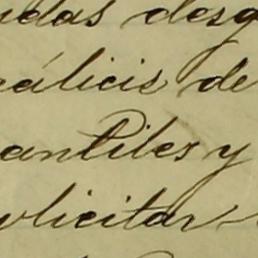 udas desg
cálicis de
antiles y
olicitar